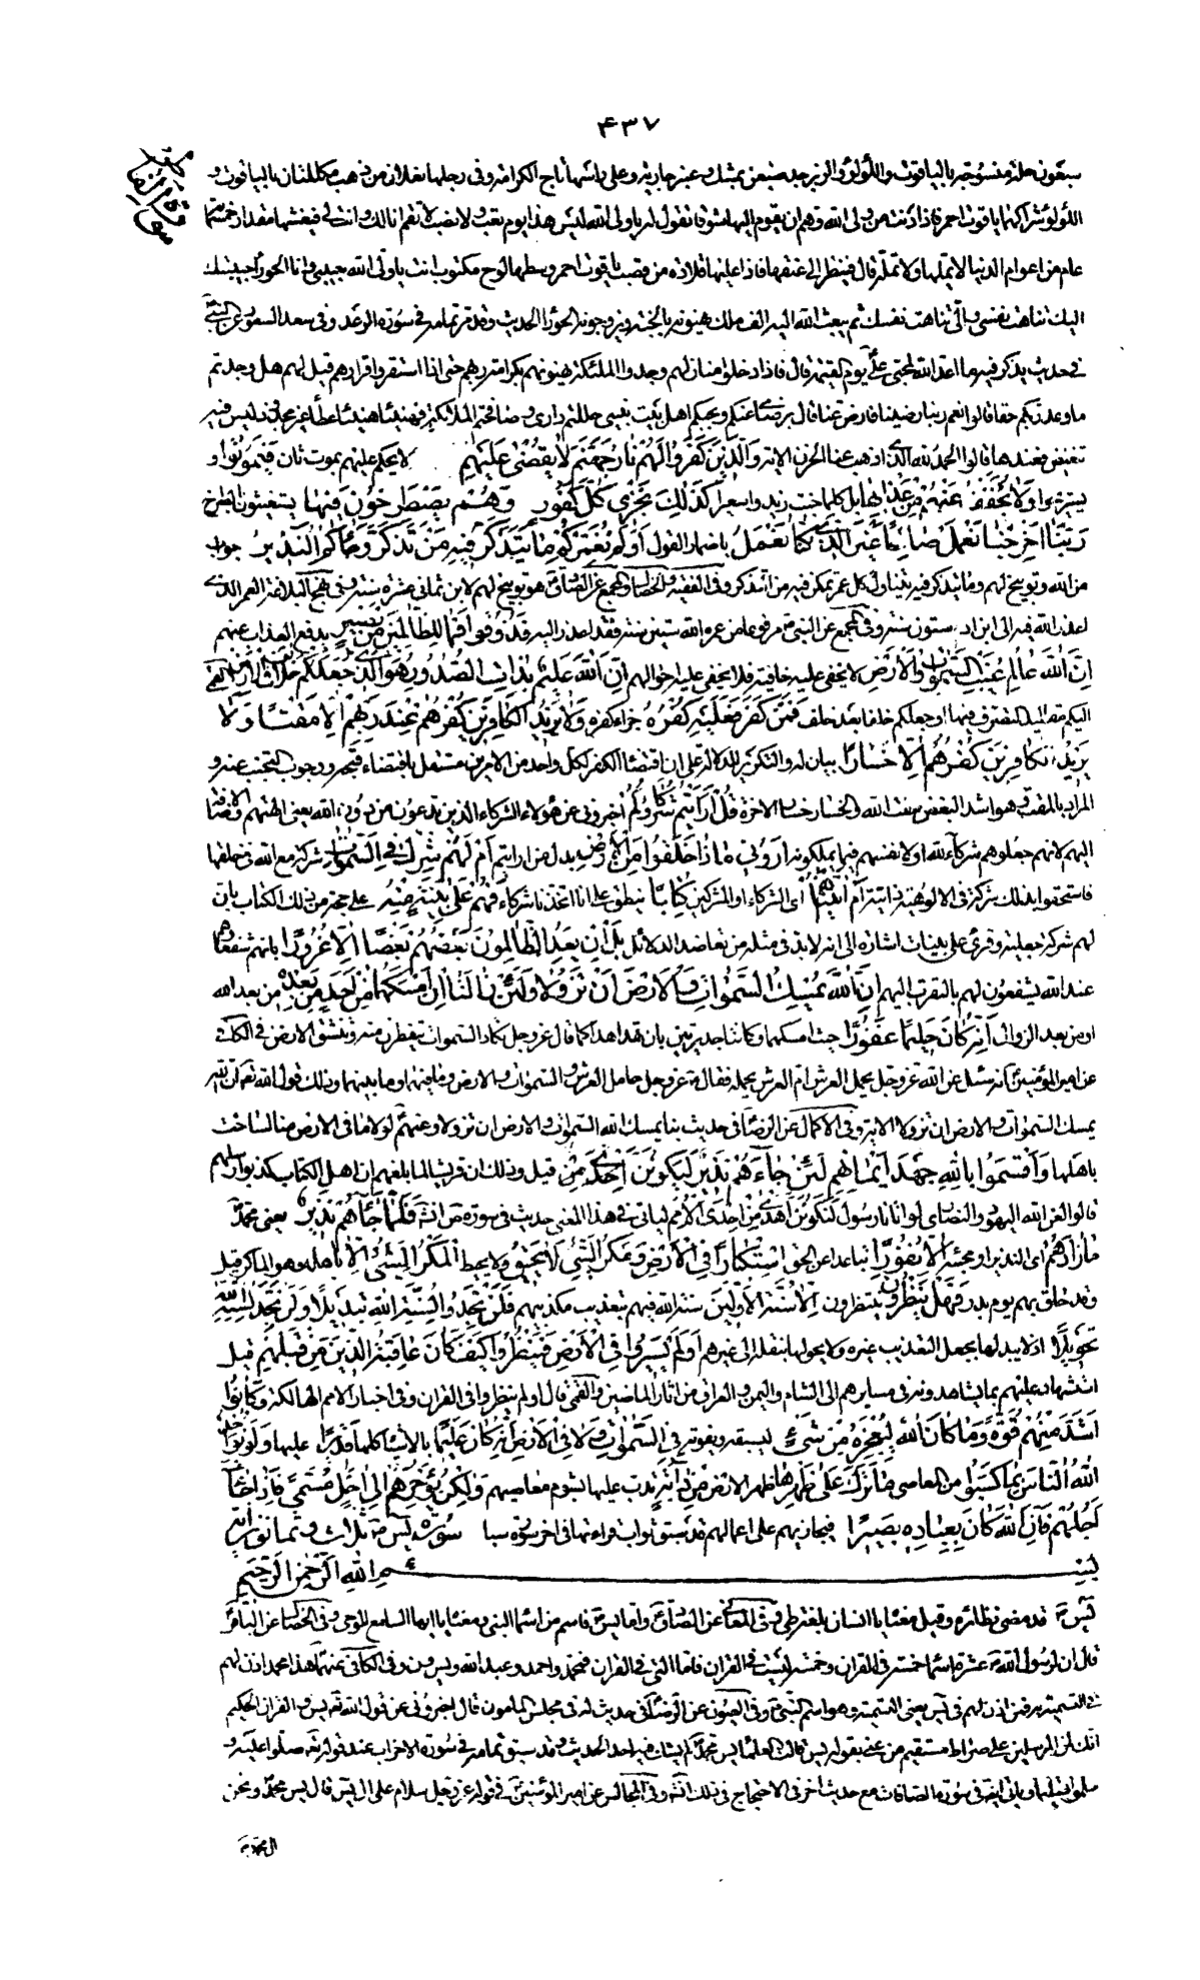 ۴۳۷
سبعون حلة منسوجة بالياقوت واللؤلؤ والزبرجد صبغن بمسك وعنبر وعلى رأسها تاج الكرامة وفي رجلها نعلان من ذهب مكللتان بالياقوت و
اللؤلؤ شراكهما ياقوت احمر فاذا دنت من ولى الله وهم ان يقوم اليها شوقا تقول له يا ولى الله ليس هذا يوم تعب ولا نصب لا تقم انا لك وانت لى فيعتنقا مقدار خمسمأة
عام من اعوام الدنيا لا يملها ولا تمله قال فينظر الى عنقها فاذا عليها قلادة من قصب ياقوت احمر وسطها لوح مكتوب انت يا ولى الله حبيبى وانا الحوراء حبيبتك
اليك تناهت نفسى والى تناهت نفسك ثم يبعث الله اليه الف ملك يهنونه بالجنة ويزوجونه الحوراء الحديث وقد مر تمامه في سورة الرعد وفي سعد السعود عن النبى
في حديث يذكر فيه ما اعد الله لمحبى على يوم القيمة قال فاذا دخلوا منازلهم وجدوا الملئكة يهنونهم بكرامة ربهم حتى اذا استقروا قرارهم قيل لهم هل وجدتم
ما وعد ربكم حقا قالوا نعم ربنا رضينا فارض عنا قال برضاى عنكم وبحبكم اهل بيت نبيى حللتم دارى وصافحتم الملائكة فهنيئا هنيئا عطاء غير مجذوذ ليس فيه
تنغيص فعندها قالوا الحمد لله الذى اذهب عنا الحزن الاية وَالَّذِينَ كَفَرُوا لَهُمْ نَارُ جَهَنَّمَ لَا يُقْضَى عَلَيْهِمْ لا يحكم عليهم بموت ثان فَيَمُوتُوا و
يستريحوا وَلَا يُخَفَّفُ عَنْهُمْ مِنْ عَذَابِهَا بل كلما خبت زيد واسعارا كَذَلِكَ نَجْزِي كُلَّ كَفُورٍ وَهُمْ يَصْطَرِخُونَ فِيهَا يستغيثون
رَبَّنَا أَخْرِجْنَا نَعْمَلْ صَالِحًا غَيْرَ الَّذِي كُنَّا نَعْمَلُ باضمار القول أَوَلَمْ نُعَمِّرْكُمْ مَا يَتَذَكَّرُ فِيهِ مَنْ تَذَكَّرَ وَجَاءَكُمُ النَّذِيرُ جواب
من الله وتوبيخ لهم وما يتذكر فيه يتناول كل عمر تمكن فيه من التذكر وفي الفقيه والخصال والمجمع عن الصادق هو توبيخ لهم لابن ثمانى عشرة سنة وفي نهج البلاغة العمر الذى
اعذر الله فيه الى ابن ادم ستون سنة وفي المجمع عن النبى مرفوعا من عمره الله ستين سنة فقد اعذر اليه فَذُوقُوا فَمَا لِلظَّالِمِينَ مِنْ نَصِيرٍ يدفع العذاب عنهم
إِنَّ اللَّهَ عَالِمُ غَيْبِ السَّمٰوَاتِ وَالْأَرْضِ لا يخفى عليه خافية فلا يخفى عليه احوالهم إِنَّهُ عَلِيمٌ بِذَاتِ الصُّدُورِ هُوَ الَّذِي جَعَلَكُمْ خَلَائِفَ فِي الْأَرْضِ
اليكم مقاليد التصرف فيها او جعلكم خلفا بعد خلف فَمَنْ كَفَرَ فَعَلَيْهِ كُفْرُهُ جزاء كفره وَلَا يَزِيدُ الْكَافِرِينَ كُفْرُهُمْ عِنْدَ رَبِّهِمْ إِلَّا مَقْتًا وَلَا
يَزِيدُ الْكَافِرِينَ كُفْرُهُمْ إِلَّا خَسَارًا بيان له والتكرير للدلالة على ان اقتضاء الكفر لكل واحد من الامرين مستقل باقتضاء قبحه ووجوب التجنب عنه و
المراد بالمقت وهو اشد البغض مقت الله وبالخسار خسار الاخرة قُلْ أَرَأَيْتُمْ شُرَكَاءَكُمُ اخبرونى عن هؤلاء الشركاء الذين تدعون من دون الله يعنى الهتهم والاضافة
اليهم لانهم جعلوهم شركاء لله او لانفسهم فيما يملكونه أَرُونِي مَاذَا خَلَقُوا مِنَ الْأَرْضِ بدل من ارايتم أَمْ لَهُمْ شِرْكٌ فِي السَّمٰوَاتِ شركة مع الله فى خلقها
فاستحقوا بذلك شركة فى الالوهية ذاتية أَمْ آتَيْنَاهُمْ اى الشركاء او المشركين كِتَابًا ينطق على انا اتخذنا شركاء فَهُمْ عَلَى بَيِّنَةٍ مِنْهُ على حجة من ذلك الكتاب بان
لهم شركة جعلية وقرئ على بينات اشارة الى انه لا بد فى مثله من تعاضد الدلائل بَلْ إِنْ يَعِدُ الظَّالِمُونَ بَعْضُهُمْ بَعْضًا إِلَّا غُرُورًا بانهم شفعاؤهم
عند الله يشفعون لهم بالتقرب اليهم إِنَّ اللَّهَ يُمْسِكُ السَّمٰوَاتِ وَالْأَرْضَ أَنْ تَزُولَا وَلَئِنْ زَالَتَا إِنْ أَمْسَكَهُمَا مِنْ أَحَدٍ مِنْ بَعْدِهِ من بعد الله
او من بعد الزوال إِنَّهُ كَانَ حَلِيمًا غَفُورًا حيث امسكهما وكانتا جديرتين بان تهدا هدا كما قال عز وجل تكاد السموات يتفطرن منه وتنشق الارض في الكافى
عن امير المؤمنين انه سئل عن الله عز وجل يحمل العرش ام العرش يحمله فقال ع عز وجل حامل العرش والسموات والارض وما فيهما وما بينهما وذلك قول الله تعالى ان الله
يمسك السموات والارض ان تزولا الاية وفى الاكمال عن الرضا فى حديث بنا يمسك الله السموات والارض ان تزولا وعنهم لولا ما فى الارض منا لساخت
باهلها وَأَقْسَمُوا بِاللَّهِ جَهْدَ أَيْمَانِهِمْ لَئِنْ جَاءَهُمْ نَذِيرٌ لَيَكُونُنَّ أَهْدَى مِنْ قيل وذلك ان قريشا لما بلغهم ان اهل الكتاب كذبوا رسلهم
قالوا لعن الله اليهود والنصارى لو اتانا رسول لَنَكُونَنَّ أَهْدَى مِنْ إِحْدَى الْأُمَمِ لياتى فى هذا المعنى حديث فى سورة ص انشاء الله فَلَمَّا جَاءَهُمْ نَذِيرٌ يعنى محمد
مَا زَادَهُمْ اى النذير او مجيئه إِلَّا نُفُورًا تباعدا عن الحق اسْتِكْبَارًا فِي الْأَرْضِ وَمَكْرَ السَّيِّئِ وَلَا يَحِيقُ ولا يحيط الْمَكْرُ السَّيِّئُ إِلَّا بِأَهْلِهِ وهو الماكر قيل
وقد حاق بهم يوم بدر فَهَلْ يَنْظُرُونَ ينتظرون إِلَّا سُنَّتَ الْأَوَّلِينَ سنة الله فيهم بتعذيب مكذبيهم فَلَنْ تَجِدَ لِسُنَّةِ اللَّهِ تَبْدِيلًا وَلَنْ تَجِدَ لِسُنَّةِ اللَّهِ
تَحْوِيلًا اذ لا يبدلها بجعل التعذيب غيره ولا يحولها بنقله الى غيرهم أَوَلَمْ يَسِيرُوا فِي الْأَرْضِ فَيَنْظُرُوا كَيْفَ كَانَ عَاقِبَةُ الَّذِينَ مِنْ قَبْلِهِمْ قيل
استشهاد عليهم بما يشاهدونه فى مسايرهم الى الشام واليمن والعراق من اثار الماضين والقمى قال اولم ينظروا فى القران وفى اخبار الامم الهالكة وَكَانُوا
أَشَدَّ مِنْهُمْ قُوَّةً وَمَا كَانَ اللَّهُ لِيُعْجِزَهُ مِنْ شَيْءٍ ليسبقه ويفوته فِي السَّمٰوَاتِ وَلَا فِي الْأَرْضِ إِنَّهُ كَانَ عَلِيمًا بالاشياء كلها قَدِيرًا عليها وَلَوْ يُؤَاخِذُ
اللَّهُ النَّاسَ بِمَا كَسَبُوا من المعاصى مَا تَرَكَ عَلَى ظَهْرِهَا ظهر الارض مِنْ دَابَّةٍ تدب عليها بشوم معاصيهم وَلٰكِنْ يُؤَخِّرُهُمْ إِلَى أَجَلٍ مُسَمًّى فَإِذَا جَاءَ
أَجَلُهُمْ فَإِنَّ اللَّهَ كَانَ بِعِبَادِهِ بَصِيرًا فيجازيهم على اعمالهم قد سبق ثواب قراءتها فى اخر سورة سبا سورة يس ثلاث وثمانون اية
بسم الله الرحمن الرحيم
يس قد مضى نظائره وقيل معناه يا انسان بلغة طى وفى المعانى عن الصادق واما يس فاسم من اسماء النبى ومعناه يا ايها السامع للوحى وفى الخصال عن الباقر
قال ان لرسول الله عشرة اسماء خمسة فى القران وخمسة ليست فى القران فاما التى فى القران فمحمد واحمد وعبد الله ويس ون وفى الكافى عنه هذا محمد اذن لهم
فى التسمية به فمن اذن لهم فى يس يعنى التسمية وهو اسم النبى وفى العيون عن الرضا فى حديث له فى مجلس المامون قال اخبرونى عن قول الله تعالى يس والقران الحكيم
انك لمن المرسلين على صراط مستقيم فمن عنى بقوله يس قالت العلماء يس محمد لم يشك فيه احد الحديث وقد سبق تمامه فى سورة الاحزاب عند قوله تعالى صلوا عليه و
سلموا تسليما ويأتى ايضا فى سورة الصافات مع حديث اخر فى الاحتجاج فى ذلك انشاء الله وفى المجالس عن امير المؤمنين فى قوله عز وجل سلام على ال يس قال يس محمد ونحن
ال محمد